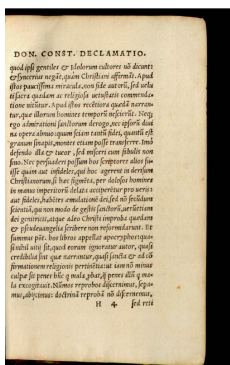 DON. CONST. DECLAMATIO.
quod ipsi gentiles & idolorum cultores nõ dicunt:
& syncerius negãt, quàm Christiani affirmãt. Apud
istos paucissima miracula, non fide autorũ, sed uelu
ti sacra quadam ac religiosa uetustatis commenda-
tione nituntur. Apud istos recẽtiora quædã narran-
tur, quæ illorum homines temporũ nescierũt. Neq;
ego admirationi sanctorum derogo, nec ipsorũ diui
na opera abnuo: quum sciam tantũ fidei, quantũ est
granum sinapis, montes etiam posse transferre. Imò
defendo illa & tueor, sed misceri cum fabulis non
sino. Nec persuaderi possum hos scriptores alios fu-
isse quàm aut infideles, qui hoc agerent in derisum
Christianorum, si hæc figmẽta, per dolosos homines
in manus imperitorũ delata acciperẽtur pro ueris:
aut fideles, habẽtes æmulationẽ dei, sed nõ secũdum
scientiã, qui non modo de gestis sanctorũ, uerũetiam
dei genitricis, atque adeo Christi improba quædam
& pseudeuangelia scribere non reformidarunt. Et
summus põt. hos libros appellat apocryphos: qua-
si nihil uitij sit, quod eorum ignoratur autor, quasi
credibilia sint quæ narrantur, quasi sancta & ad cõ
firmationem religionis pertinẽtia: ut iam nõ minus
culpæ sit penes hũc q mala probat, q̃ penes illũ q ma-
la excogitauit. Nũmos reprobos discernimus, sepa-
mus, abijcimus: doctrinã reprobã nõ discernemus,
H 4 sed reti